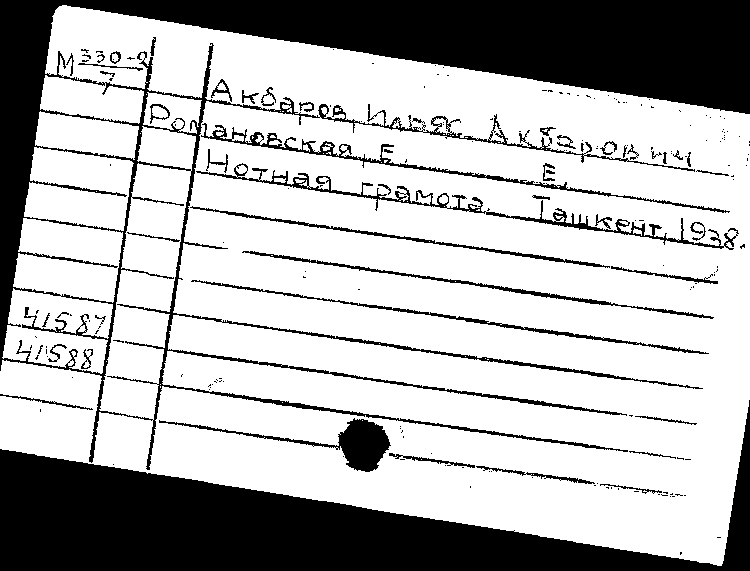 М 330-2
7
Акбаров, Ильяс Акбарович
Романовская, Е. Е.
Нотная грамота. Ташкент, 1938.
41587
41588